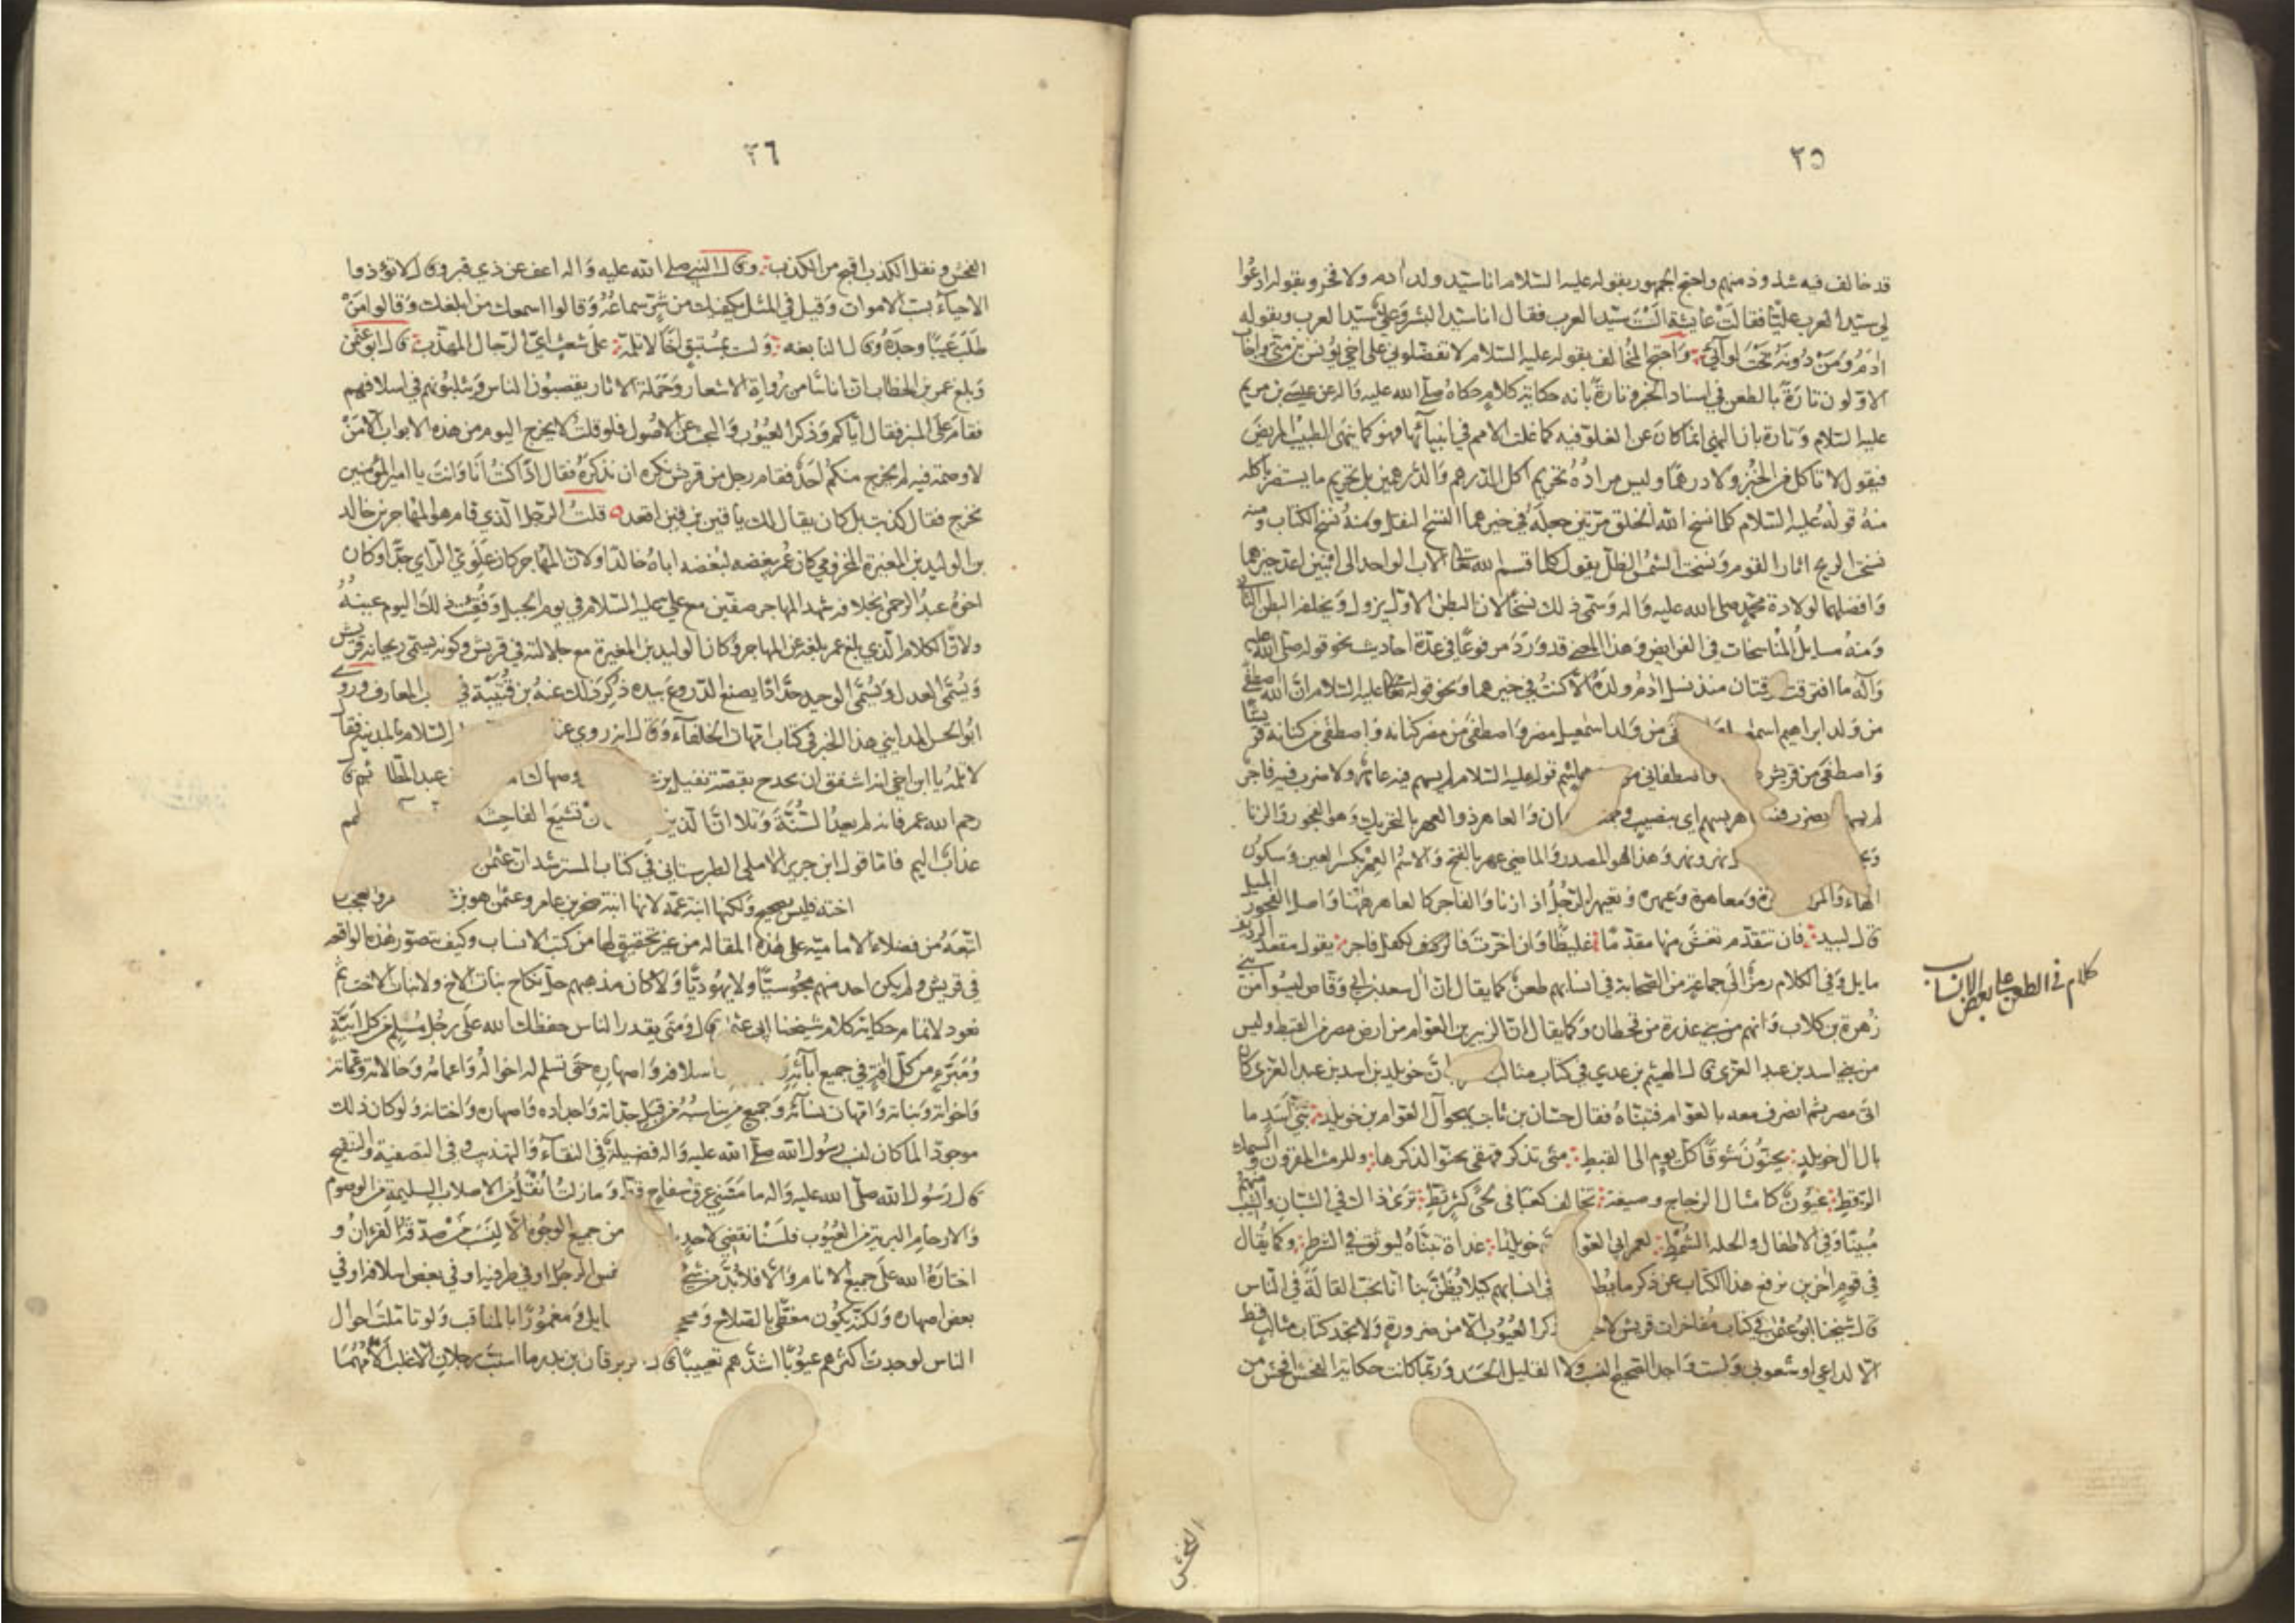 ٢٥
قد خالف فيه شذوذ منهم واحتج الجمهور بقوله عليه السلام انا سيد ولد ادم ولا فخر وبقوله ادعوا
لي سيد العرب عليا فقالت عايشة الست سيد العرب فقال انا سيد البشر وعلي سيد العرب وبقوله
ادم ومن دونه تحت لوائي واحتج المخالف بقوله عليه السلام لا تفضلوني على اخي يونس بن متى واجاب
الاولون تارة بالطعن في اسناد الخبر وتارة بانه حكاية كلام حكاه صلى الله عليه واله عن عيسى بن مريم
عليه السلام وتارة بان النهي انما كان عن الغلو فيه كما غلت الامم في انبيائها فهو كما ينهى الطبيب المريض
فيقول لا تاكل من الخبز ولا درهما وليس مراده تحريم اكل الدرهم والدرهمين بل تحريم ما يستضر باكله
منه قوله عليه السلام كلما نسخ الله الخلق فرقتين جعله في خيرهما النسخ النقل ومنه نسخ الكتاب ومنه
نسخت الريح اثار القوم ونسخت الشمس الظل يقول كلما قسم الله تعالى الاب الواحد الى ابنين اعد خيرهما
وافضلهما لولادة محمد صلى الله عليه واله وسمى ذلك نسخا لان البطن الاول يزول ويخلفه البطن الثاني
ومنه مسايل المناسخات في الفرايض وهذا المعنى قد ورد مرفوعا في عدة احاديث نحو قوله صلى الله عليه
واله ما افترقت فرقتان منذ نسل ادم ولده الا كنت في خيرهما ونحو قوله عليه السلام ان الله اصطفى
من ولد ابراهيم اسمعيل من ولد اسمعيل مضر واصطفى من مضر كنانه واصطفى من كنانه قريشا
واصطفى من قريش واصطفاني من هاشم قوله عليه السلام لم يسهم فيه عاهر ولا ضرب فيه فاجر
لم يسهم يضرب فيه عاهر بسهم اي بنصيب وجمعه ان والعاهر ذو العهر بالتحريك وهو الفجور والزنا
نهر ونهر وهذا هو المصدر والماضي عهر بالفتح والاسم العهر بكسر العين وسكون
الهاء والمر ومعاهرة وعيهرة وتعيهر الرجل اذا زنا والفاجر كالعاهر ههنا واصل الفجور الميل
قال لبيد فان تتقدم تغش منها مقدما غليظا وان اخرت فالكفل فاجر يقول مقعد الرديف
مايل وفي الكلام رمز الى جماعة من الصحابة في انسابهم طعن كما يقال ان ال سعد بن ابي وقاص ليسوا من بني
زهرة بن كلاب وانهم من بني عذرة من قحطان وكما يقال ان ال الزبير بن العوام من ارض مصر من القبط وليس
من بني اسد بن عبد العزى قال الهيثم بن عدي في كتاب مثالب ان خويلد بن اسد بن عبد العزى كان
اتى مصر ثم انصرف معه بالعوام فتبناه فقال حسان بن ثابت يهجو ال العوام بن خويلد بني اسد ما
بال ال خويلد يحنون شوقا كل يوم الى القبط متى تذكر قهقى يحنوا لذكرها وللرمث المقرون والسمك
الرقط عيون كامثال الزجاج وصيغة تخالف كعبا في لحى كثة ثط ترى ذاك في الشبان والشيب منهم
مبينا وفي الاطفال والجلة الشمط لعمر ابي العوام خويلدا غداة تبناه ليوثق في الشرط وكما يقال
في قوم اخرين نرفع هذا الكتاب عن ذكر ما يط في انسابهم كيلا يظن بنا انا نحب القالة في الناس
قال شيخنا ابو عثمن في كتاب مفاخرات قريش لا خير ذكر العيوب الا من ضرورة ولا نجد كتاب مثالب قط
الا لدعي او شعوبي ولست واجدا لصحيح النسب ولا القليل الحسد وربما كانت حكاية الفحش افحش من
كلام في الطعن على بعض الانساب
الفحش
٢٦
الفحش ونقل الكذب اقبح من الكذب وقال النبي صلى الله عليه واله اعف عن ذي قبر وقال لا تؤذوا
الاحياء بسب الاموات وقيل في المثل يكفيك من شر سماعه وقالوا اسمعك من ابلغك وقالوا من
طلب عيبا وجده وقال النابغه ولست بمستبق اخا لا تلمه على شعث اي الرجال المهذب قال ابو عثمن
وبلغ عمر بن الخطاب ان اناسا من رواة الاشعار وحملة الاثار يقصبون الناس ويثلبونهم في اسلافهم
فقام على المنبر فقال اياكم وذكر العيوب والبحث عن الاصول فلو قلت لا يخرج اليوم من هذه الابواب الا من
لا وصمة فيه لم يخرج منكم احد فقام رجل من قريش نكره ان نذكره فقال اذا كنت انا وانت يا امير المؤمنين
نخرج فقال كذبت بل كان يقال لك يا قين بن قين اقعد قلت الرجل الذي قام هو المهاجر بن خالد
بن الوليد بن المغيرة المخزومي كان عمر يبغضه لبغضه اباه خالدا ولان المهاجر كان علوي الراي جدا وكان
اخوه عبد الرحمن بخلافه شهد المهاجر صفين مع علي عليه السلام في يوم الجمل وفقئت ذلك اليوم عينه
ولان الكلام الذي بلغ عمر بلغه عن المهاجر وكان الوليد بن المغيرة مع جلالته في قريش وكونه يسمى ريحانة قريش
ويسمى العدل ويسمى الوحيد حدادا يصنع الدروع بيده ذكر ذلك عنه بن قتيبة في المعارف وروى
ابو الحسن المدايني هذا الخبر في كتاب امهات الخلفاء وقال انه روي عن السلام بالمدينه فقال
لا تلمه يا ابن اخي انه اشفق ان يحدج بقصة نفيل بن وصهاك عبد المطلب ثم قال
رحم الله عمر فانه لم يعد السنة وتلا ان الذين ان تشيع الفاحشة لهم
عذاب اليم فاما قول ابن جرير الاملي الطبرستاني في كتاب المسترشد ان عثمن
اخته فليس بصحيح ولكنها ابنة عمه لانها ابنة صخر بن عامر وعثمن هو بن عمرو والعجب
اتبعه من فضلاء الامامية على هذه المقاله من غير تحقيق لها من كتب الانساب وكيف تتصور هذه الواقعه
في قريش ولم يكن احد منهم مجوسيا ولا يهوديا ولا كان مذهبهم حل نكاح بنات الاخ ولا بنات الاخت ثم
نعود لاتمام حكاية كلام شيخنا ابي عثمن قال ومتى يقدر الناس حفظك الله على رجل مسلم من كل ابنة
ومبرء من كل افة في جميع ابائه اسلافه واصهاره حتى تسلم له اخواله واعمامه وخالاته وعماته
واخواته وبناته وامهات نسائه وجميع من يناسبه من قبل جداته واجداده واصهاره واختانه ولو كان ذلك
موجودا لما كان لنسب رسول الله صلى الله عليه واله فضيلة في النقاء والتهذيب وفي التصفية والتنقيح
قال رسول الله صلى الله عليه واله ما مسني عرق سفاح قط وما زلت انقل من الاصلاب السليمة من الوصوم
والارحام البرية من العيوب فلسنا نقضي لاحد من جميع الوجوه الا لنسب من صدقه القرءان و
اختاره الله على جميع الانام والا فلا بد من شيء نفس الرجل او في طرفيه او في بعض اسلافه او في
بعض اصهاره ولكنه يكون مغطى بالصلاح ومحجوبا ومغمورا بالمناقب ولو تاملت احوال
الناس لوجدت اكثرهم عيوبا اشدهم تعييبا قال زبرقان بن بدر ما استب رجلان الا غلب الامهما